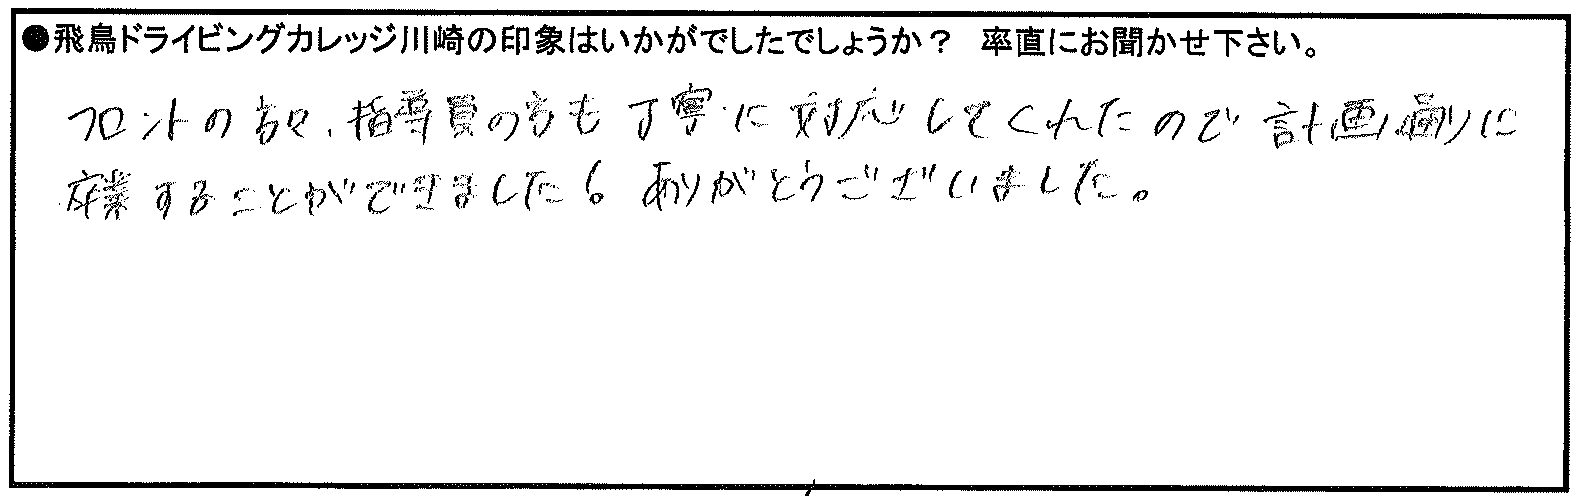 ●飛鳥ドライビングカレッジ川崎の印象はいかがでしたでしょうか？　率直にお聞かせ下さい。
フロントの方々、指導員の方も丁寧に対応してくれたので計画通りに
卒業することができました。ありがとうございました。